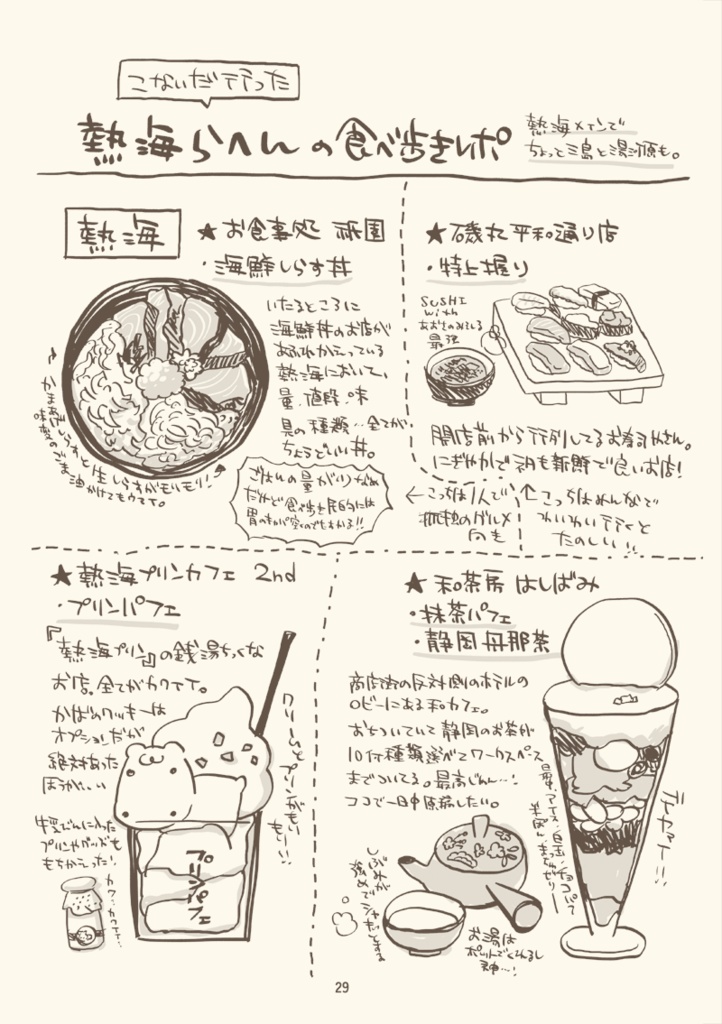 こないだ行った
熱海らへんの食べ歩きレポ
熱海メインで
ちょっと三島と湯河原も。
熱海
★お食事処 祇園
・海鮮しらす丼
いたるところに
海鮮丼のお店が
あふれかえっている
熱海において、
量、値段、味
具の種類…全てが
ちょうどいい丼。
かまあげしらすと生しらすがモリモリ!
味変のごま油かけてもウマイ。
ごはんの量がひかえめ
だけど食べ歩き民的には
胃のキャパ空くのでたすかる!!
★磯丸 平和通り店
・特上握り
SUSHI
with
あおさのみそしる
最強
開店前から行列してるお寿司やさん。
にぎやかでネタも新鮮で良いお店!
←こっちは1人で
孤独のグルメ
向き
↑こっちはみんなで
わいわい行くと
たのしい!!
★熱海プリンカフェ 2nd
・プリンパフェ
『熱海プリン』の銭湯ちっくな
お店。全てがカワイイ。
かばのクッキーは
オプションだが
絶対あった
ほうがいい
クリームとプリンがもりもり…!!
プリンパフェ
牛乳びんに入った
プリンやグッズも
もちかえった!
カワ…カワイイ…
★和茶房 はしばみ
・抹茶パフェ
・静岡丹那茶
商店街の反対側のホテルの
ロビーにある和カフェ。
おちついていて静岡のお茶が
10何種類選べてワークスペース
までついてる。最高じゃん…!
ココで一日中原稿したい。
しぶみが
強めで
シャキッとする
お湯は
ポットでくれるし
神…!
29